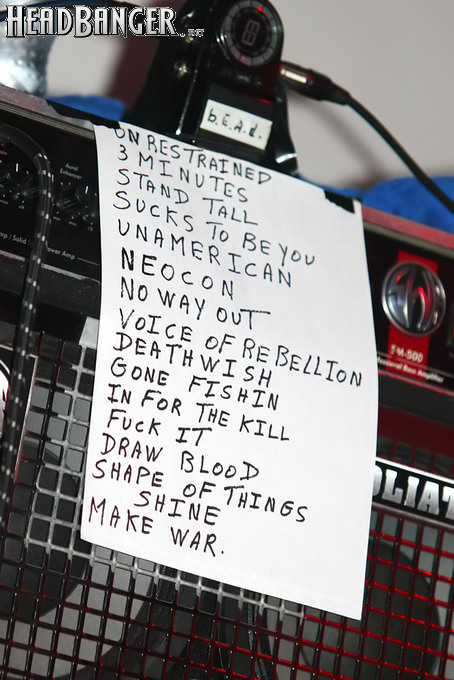 HEADBANGER
b.E.A.d.
UNRESTRAINED
3 MINUTES
STAND TALL
SUCKS TO BE YOU
UNAMERICAN
NEOCON
NO WAY OUT
VOICE OF REBELLION
DEATHWISH
GONE FISHIN
IN FOR THE KILL
FUCK IT
DRAW BLOOD
SHAPE OF THINGS
SHINE
MAKE WAR.
Aural
Enhancer
Power Amp
SM-500
Professional Bass Amplifier
OLIAT